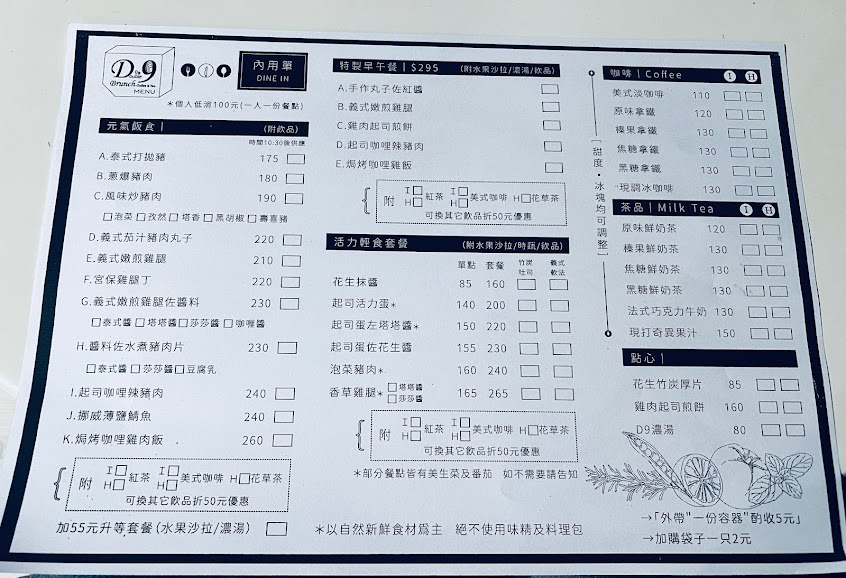 D9
Brunch
MENU
內用單
DINE IN
*個人低消100元(一人一份餐點)
元氣飯食| (附飲品)
時間10:30後供應
A.泰式打拋豬 175
B.蔥爆豬肉 180
C.風味炒豬肉 190
泡菜 孜然 塔香 黑胡椒 壽喜豬
D.義式茄汁豬肉丸子 220
E.義式嫩煎雞腿 210
F.宮保雞腿丁 220
G.義式嫩煎雞腿佐醬料 230
泰式醬 塔塔醬 莎莎醬 咖喱醬
H.醬料佐水煮豬肉片 230
泰式醬 莎莎醬 豆腐乳
I.起司咖哩辣豬肉 240
J.挪威薄鹽鯖魚 240
K.焗烤咖哩雞肉飯 260
附 I H 紅茶 I H 美式咖啡 H 花草茶
可換其它飲品折50元優惠
加55元升等套餐(水果沙拉/濃湯)
特製早午餐|$295 (附水果沙拉/濃湯/飲品)
A.手作丸子佐紅醬
B.義式嫩煎雞腿
C.雞肉起司煎餅
D.起司咖哩辣豬肉
E.焗烤咖哩雞飯
附 I H 紅茶 I H 美式咖啡 H 花草茶
可換其它飲品折50元優惠
活力輕食套餐 (附水果沙拉/時蔬/飲品)
單點 套餐 竹炭吐司 義式軟法
花生抹醬 85 160
起司活力蛋* 140 200
起司蛋左塔塔醬* 150 220
起司蛋佐花生醬 155 230
泡菜豬肉* 160 240
香草雞腿* 塔塔醬 莎莎醬 165 265
附 I H 紅茶 I H 美式咖啡 H 花草茶
可換其它飲品折50元優惠
*部分餐點皆有美生菜及番茄 如不需要請告知
*以自然新鮮食材爲主 絕不使用味精及料理包
[甜度・冰塊均可調整]
咖啡|Coffee I H
美式淡咖啡 110
原味拿鐵 120
榛果拿鐵 130
焦糖拿鐵 130
黑糖拿鐵 130
現調冰咖啡 130
茶品|Milk Tea I H
原味鮮奶茶 120
榛果鮮奶茶 130
焦糖鮮奶茶 130
黑糖鮮奶茶 130
法式巧克力牛奶 130
現打奇異果汁 150
點心|
花生竹炭厚片 85
雞肉起司煎餅 160
D9濃湯 80
→「外帶"一份容器"酌收5元」
→加購袋子一只2元